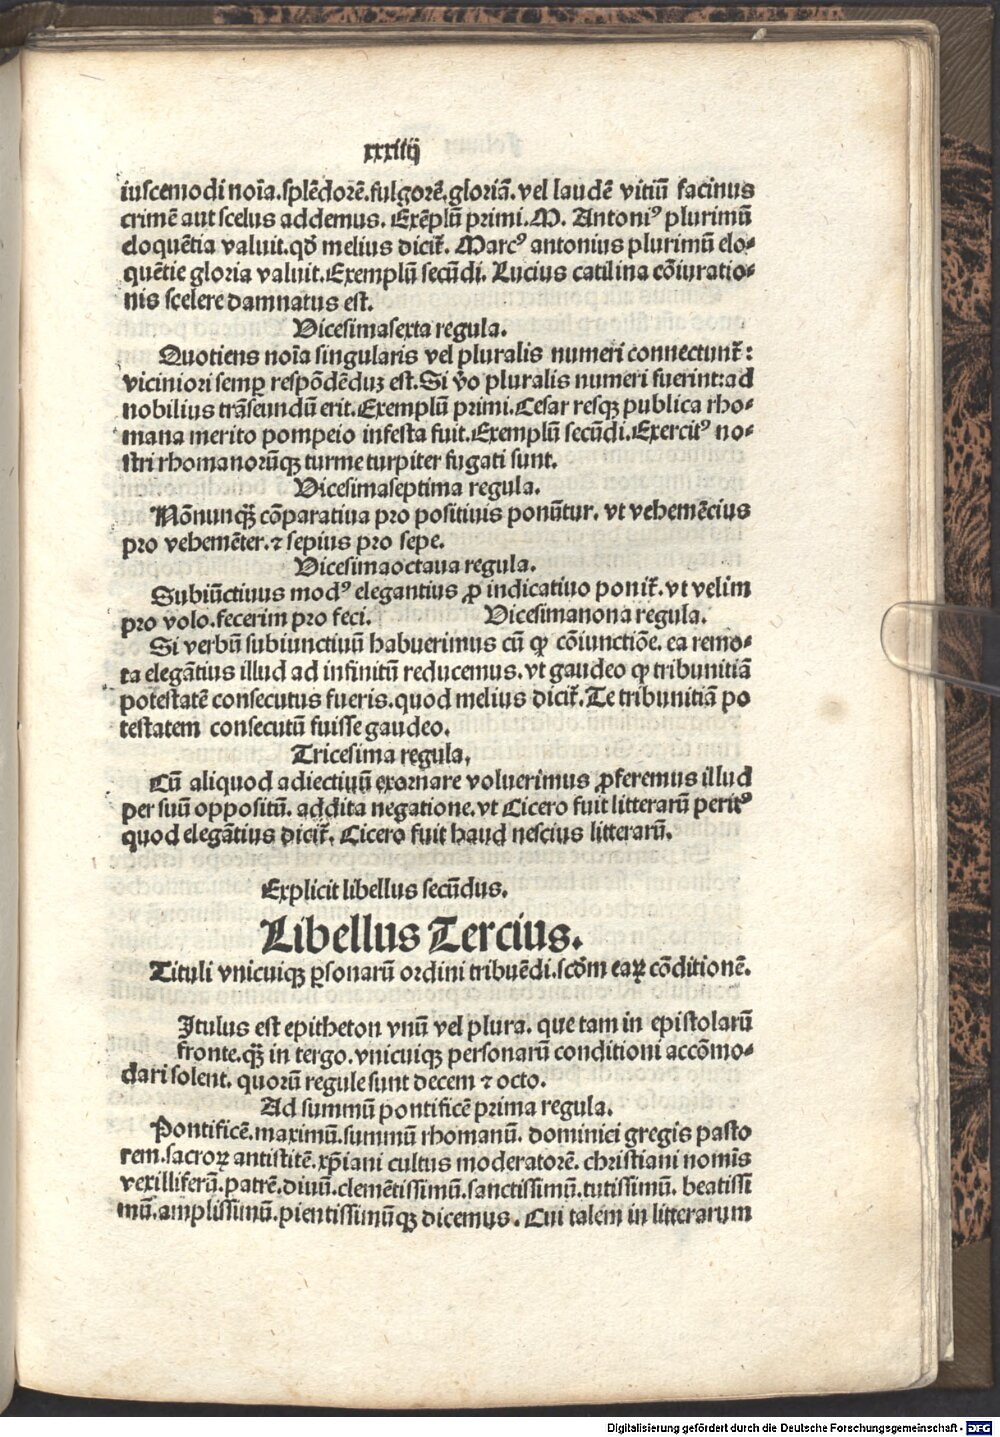 xxxiiij
iuscemodi noīa.splēdorē.fulgorē.gloriā.vel laudē vitiū facinus
crimē aut scelus addemus. Exēplū primi.M. Antoniꝰ plurimū
eloquētia valuit.qđ melius dicit̄. Marcꝰ antonius plurimū elo⸗
quētie gloria valuit.Exemplū secūdi. Lucius catilina cōiuratio⸗
nis scelere damnatus est.
Vicesimasexta regula.
Quotiens noīa singularis vel pluralis numeri connectunt̄:
viciniori semꝑ respōdēduꝫ est.Si v̄o pluralis numeri fuerint:ad
nobilius trāseundū erit.Exemplū primi.Cesar resqꝫ publica rho⸗
mana merito pompeio infesta fuit.Exemplū secūdi.Exercitꝰ no⸗
stri rhomanorūqꝫ turme turpiter fugati sunt.
Vicesimaseptima regula.
Nōnunqꝫ̄ cōparatiua pro positiuis ponūtur. vt vehemēcius
pro vehemēter.⁊ sepius pro sepe.
Vicesimaoctaua regula.
Subiūctiuus modꝰ elegantius ꝓ indicatiuo ponit̄.vt velim
pro volo.fecerim pro feci. Vicesimanona regula.
Si verbū subiunctiuū habuerimus cū ꝙ cōiunctiōe. ea remo⸗
ta elegātius illud ad infinitū reducemus.vt gaudeo ꝙ tribunitiā
potestatē consecutus fueris.quod melius dicit̄.Te tribunitiā po
testatem consecutū fuisse gaudeo.
Tricesima regula.
Cū aliquod adiectiuū exornare voluerimus ꝓferemus illud
per suū oppositū. addita negatione.vt Cicero fuit litterarū peritꝰ
quod elegātius dicit̄. Cicero fuit haud nescius litterarū.
Explicit libellus secūdus.
Libellus Tercius.
Tituli vnicuiqꝫ ꝑsonarū ordini tribuēdi.scđm eaꝝ cōditionē.
Itulus est epitheton vnū vel plura. que tam in epistolarū
fronte.qꝫ̄ in tergo.vnicuiqꝫ personarū conditioni accōmo⸗
dari solent. quorū regule sunt decem ⁊ octo.
Ad summū pontificē prima regula.
Pontificē.maximū.summū rhomanū. dominici gregis pasto
rem.sacroꝝ antistitē.xp̄iani cultus moderatorē. christiani nomīs
vexilliferū.patrē.diuū.clemētissimū.sanctissimū.tutissimū. beatissi
mū.amplissimū.pientissimūqꝫ dicemus. Cui talem in litterarum
Digitalisierung gefördert durch die Deutsche Forschungsgemeinschaft - DFG